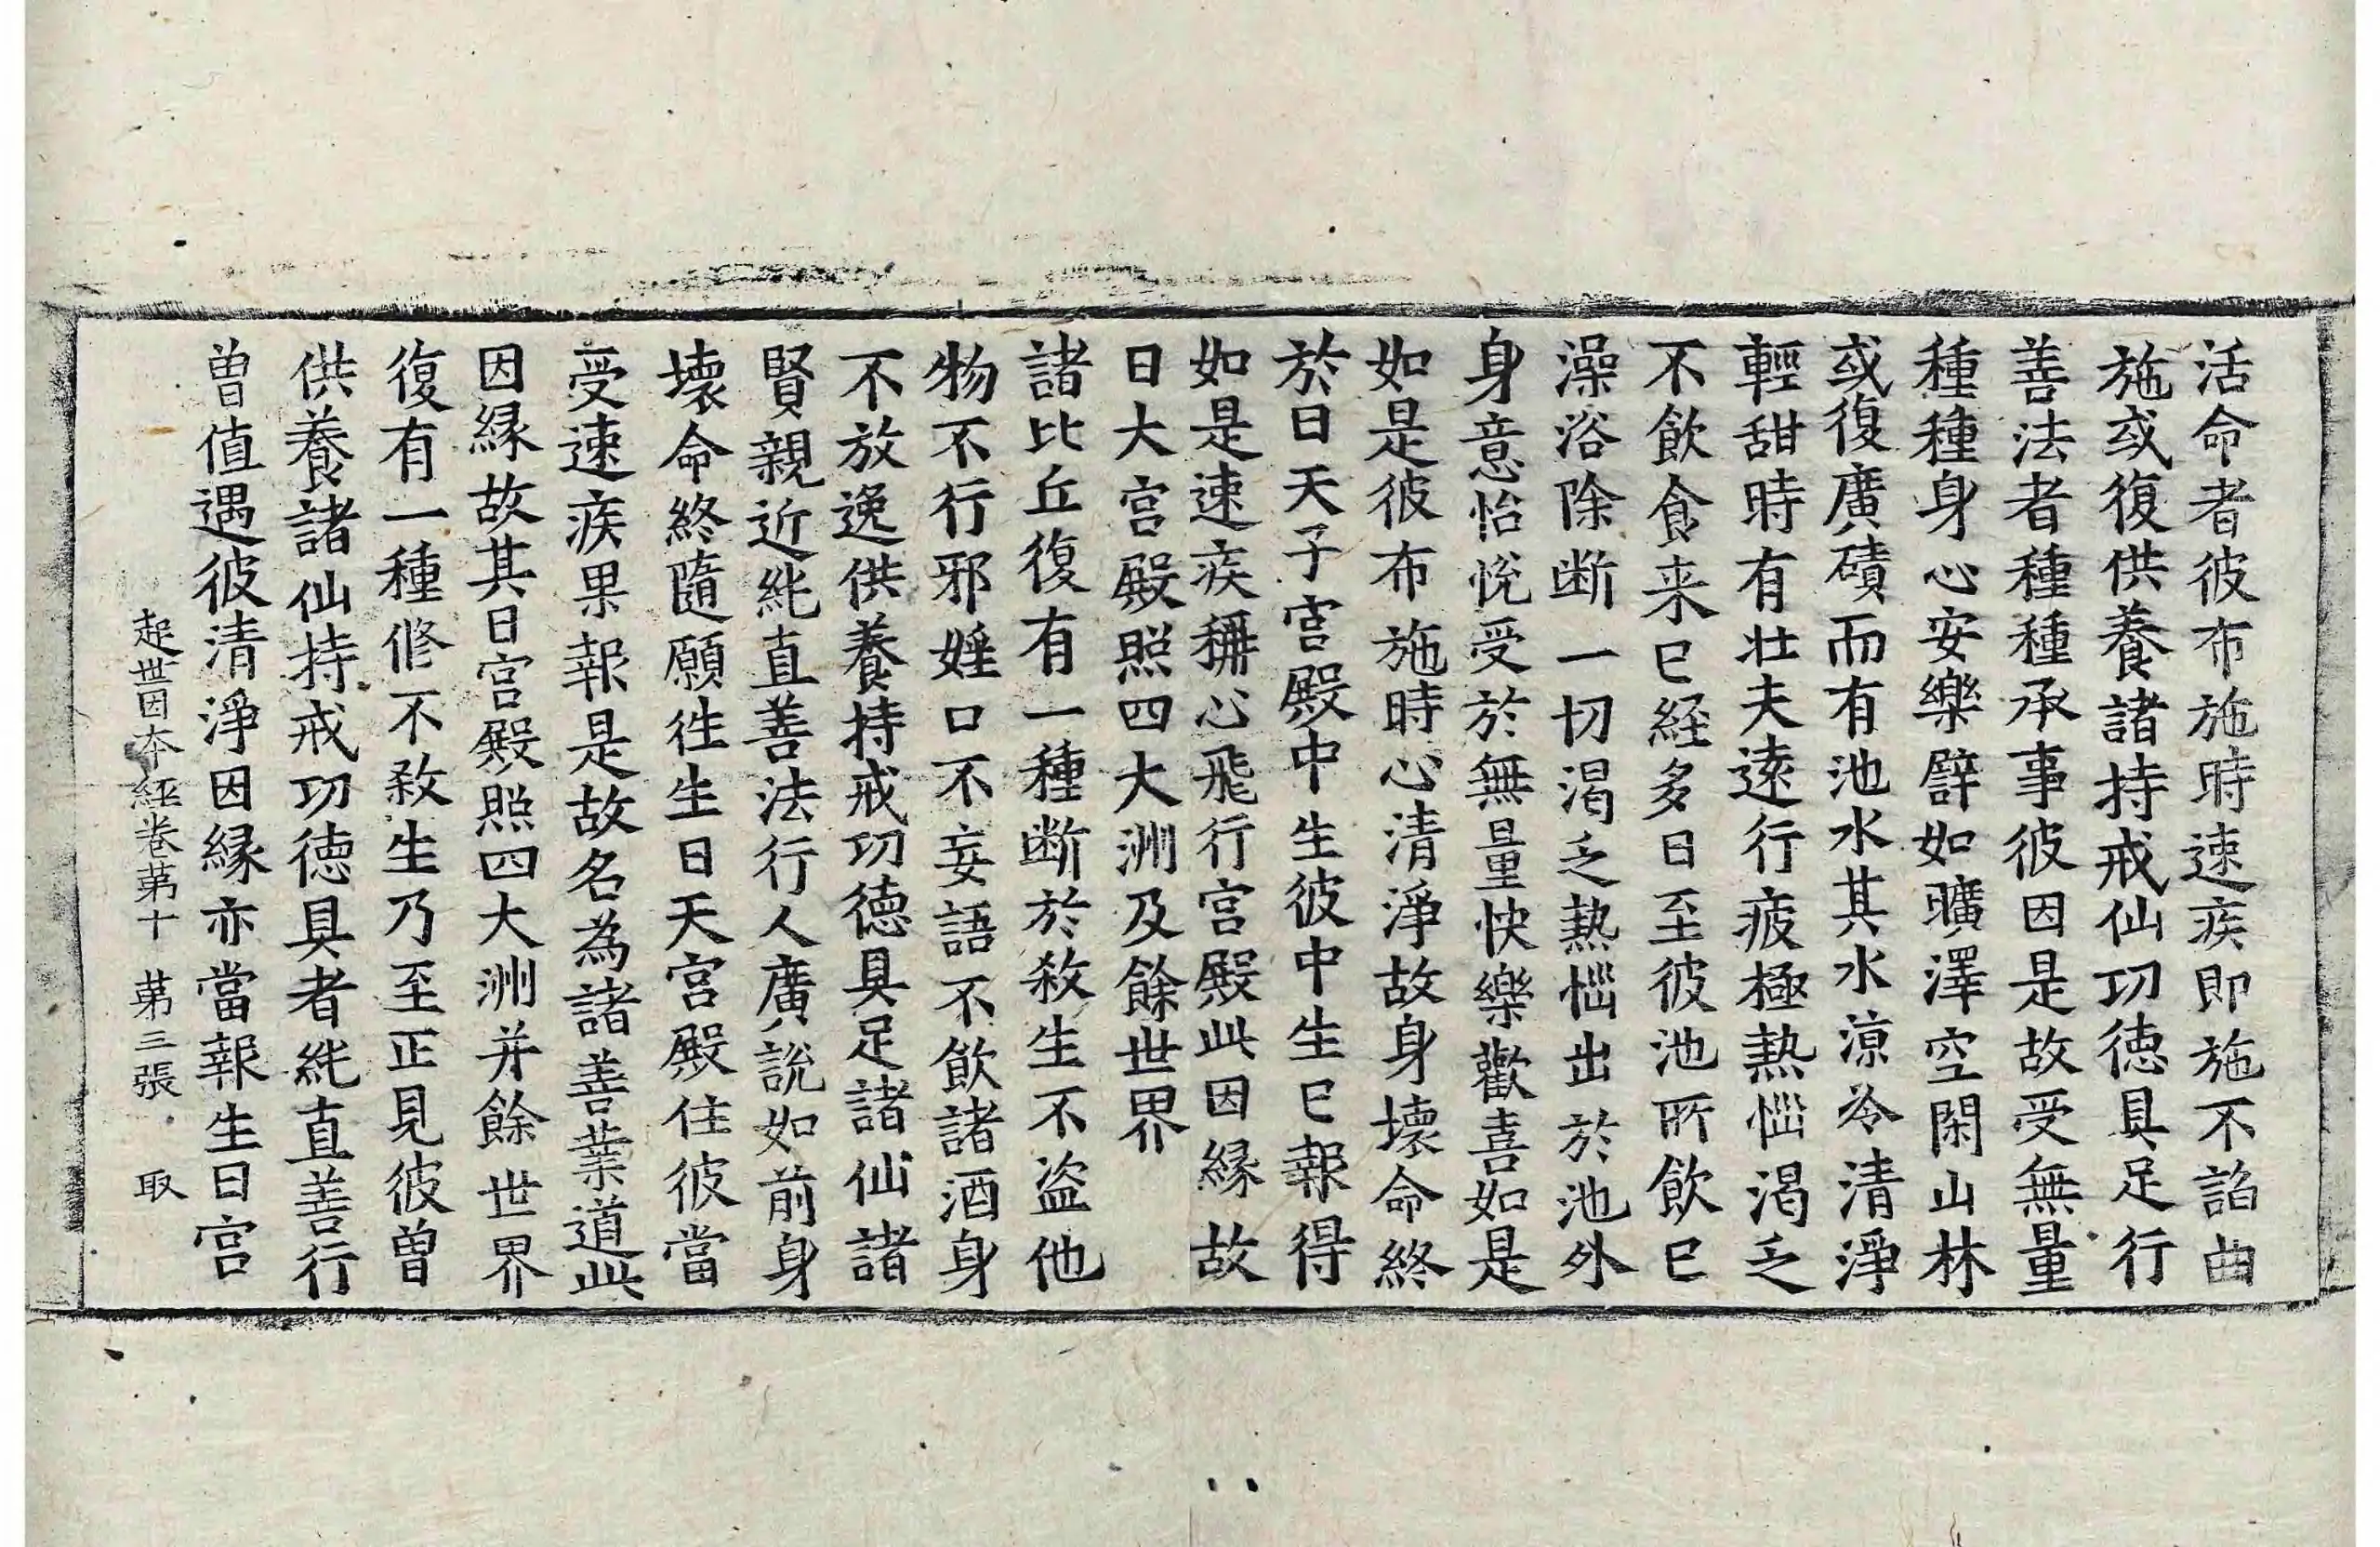 活命者彼布施時速疾即施不諂曲
施或復供養諸持戒仙功徳具足行
善法者種種承事彼因是故受無量
種種身心安樂譬如曠澤空閑山林
或復廣磧而有池水其水涼冷清淨
輕甜時有壮夫遠行疲極熱惱渴乏
不飲食来已経多日至彼池所飲已
澡浴除断一切渴乏熱惱出於池外
身意怡恱受於無量快樂歡喜如是
如是彼布施時心清淨故身壞命終
於日天子宮殿中生彼中生已報得
如是速疾稱心飛行宮殿此因縁故
日大宮殿照四大洲及餘世界
諸比丘復有一種断於殺生不盗他
物不行邪婬口不妄語不飲諸酒身
不放逸供養持戒功徳具足諸仙諸
賢親近純直善法行人廣說如前身
壞命終隨願徃生日天宮殿住彼當
受速疾果報是故名為諸善業道此
因縁故其日宮殿照四大洲并餘世界
復有一種修不殺生乃至正見彼曽
供養諸仙持戒功徳具者純直善行
曽值遇彼清淨因縁亦當報生日宮
起世因本經卷苐十 苐三張 取